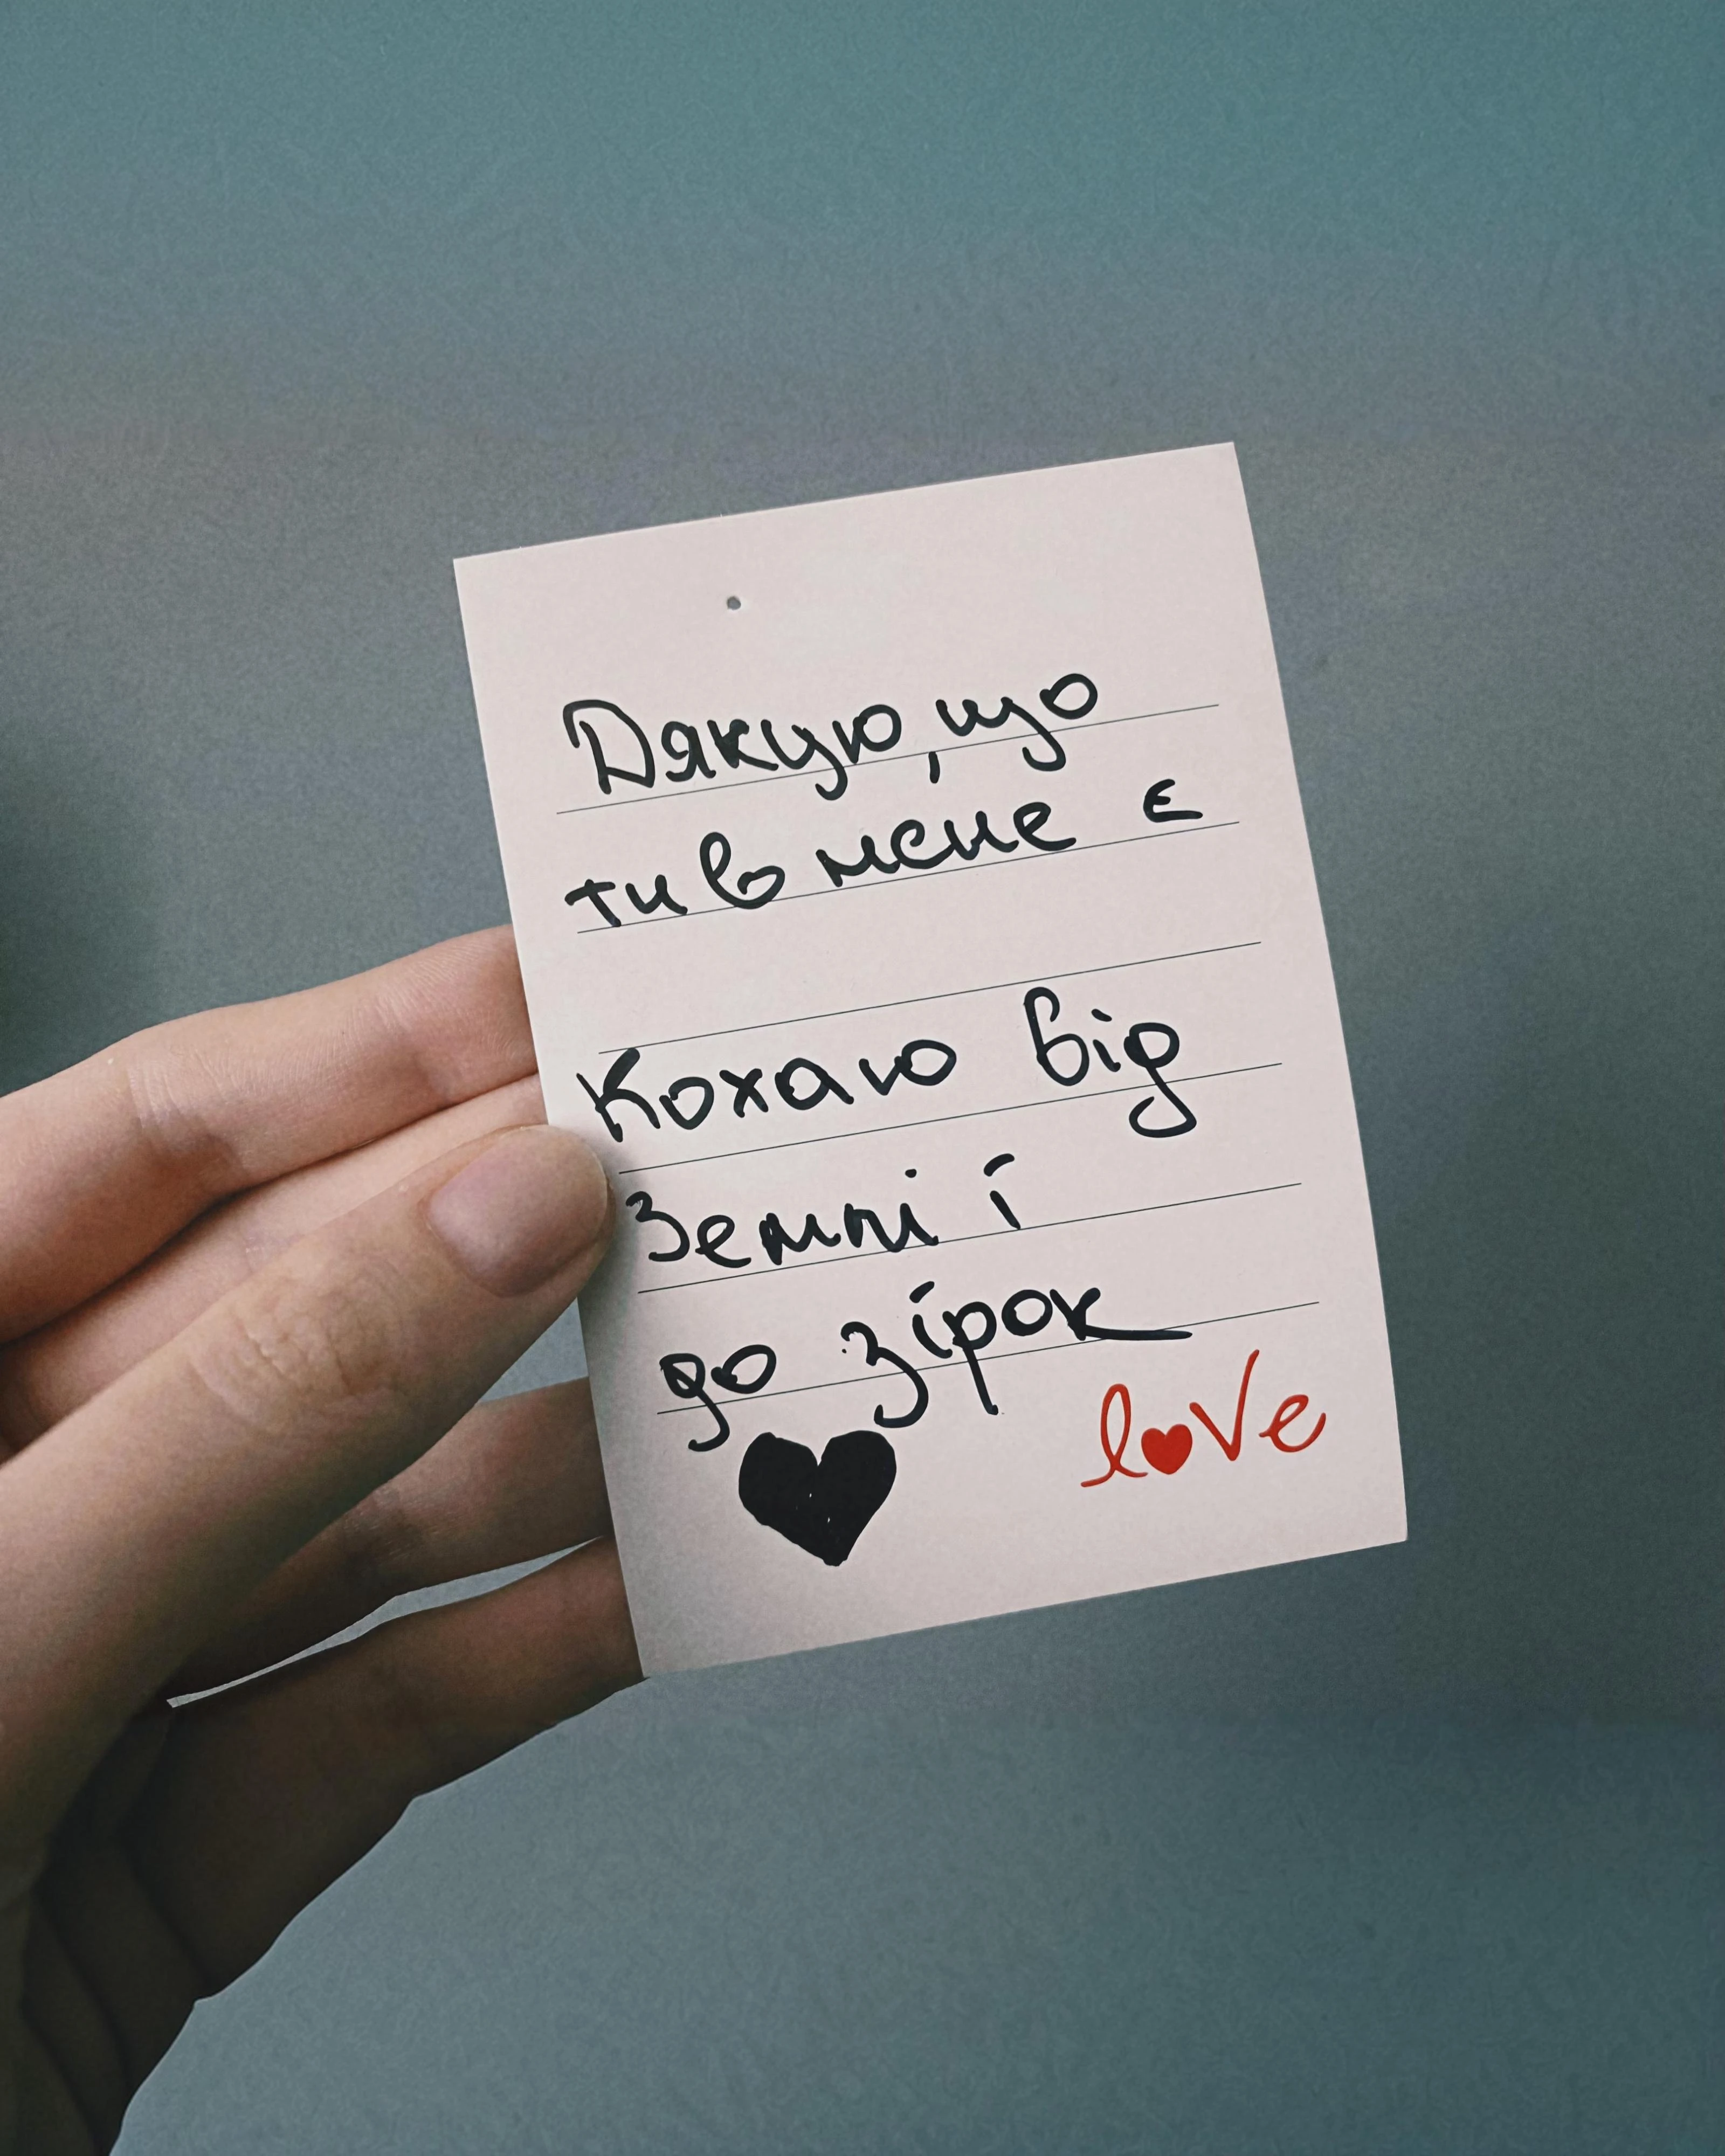 Дякую, що
ти в мене є
Кохаю від
Землі і
до зірок
love